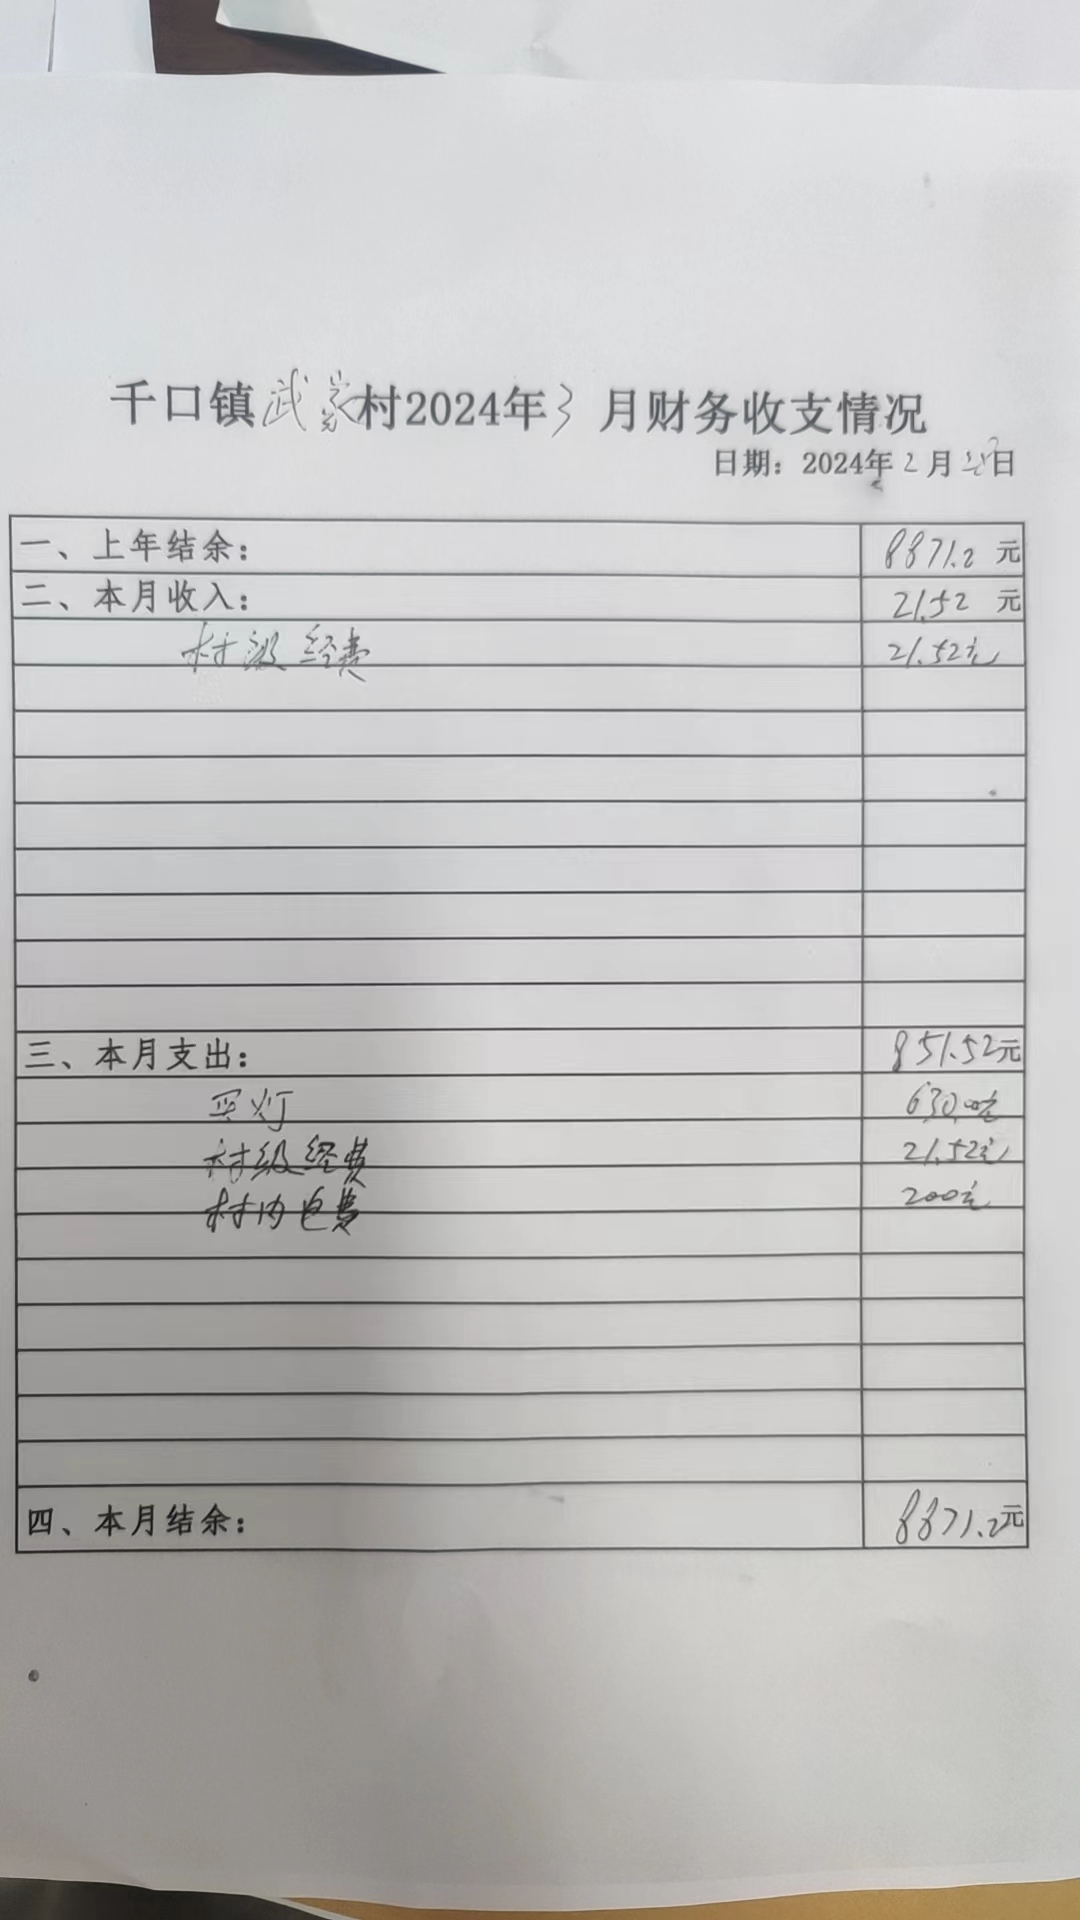 千口镇武家村2024年3月财务收支情况
日期：2024年2月28日
一、上年结余： 8871.2元
二、本月收入： 21.52元
村级经费 21.52元
三、本月支出： 851.52元
买灯 630.00元
村级经费 21.52元
村内电费 200元
四、本月结余： 8871.2元